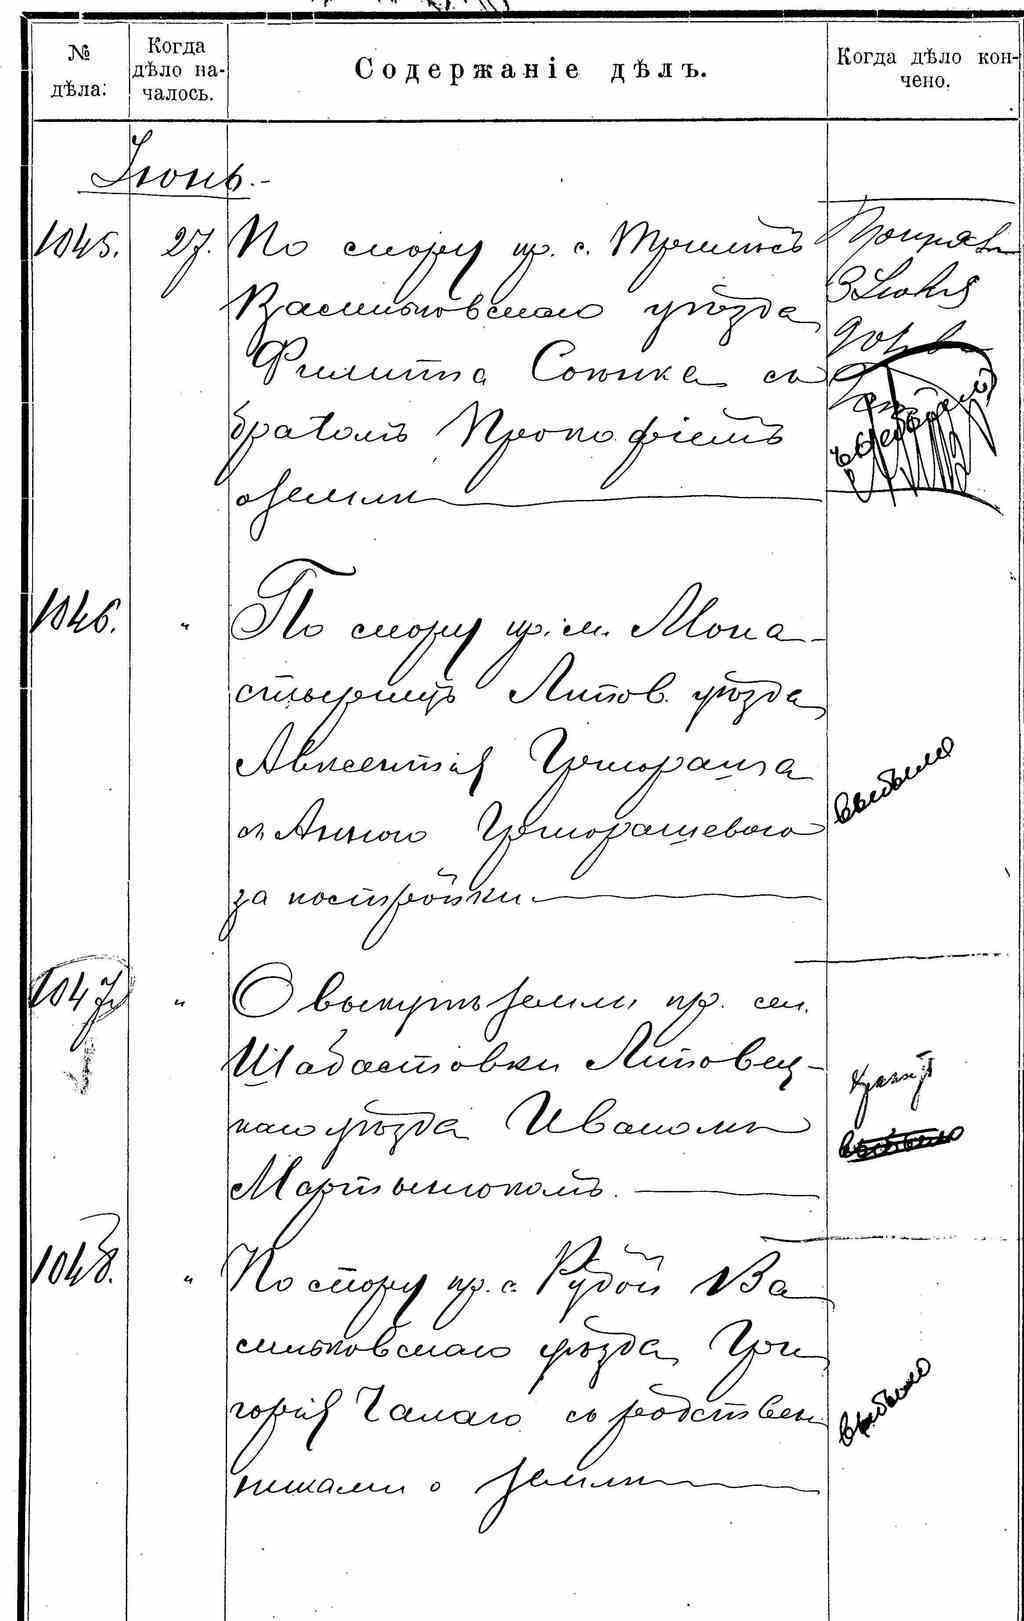 № дѣла:
Когда дѣло на-
чалось.
Содержаніе дѣлъ.
Когда дѣло кон-
чено.
Іюнь.-
1045. 27. По спору кр. с. Трилѣсъ
Васильковскаго уѣзда
Филиппа Союка съ
братомъ Прокофіемъ
о землѣ
3 Іюля
1046. " По спору кр. м. Мона-
стырищъ Липов. уѣзда
Авксентія Григораша
съ Анною Григорашевою
за постройки
выбыло
1047 " О выкупѣ земли кр. сел.
Шабастовки Липовец-
каго уѣзда Иваномъ
Мартынюкомъ.
выбыло
1048. " По спору кр. с. Рудой Ва
сильковскаго уѣзда Гри
горія Чалаго съ родствен
никами о землѣ
выбыло